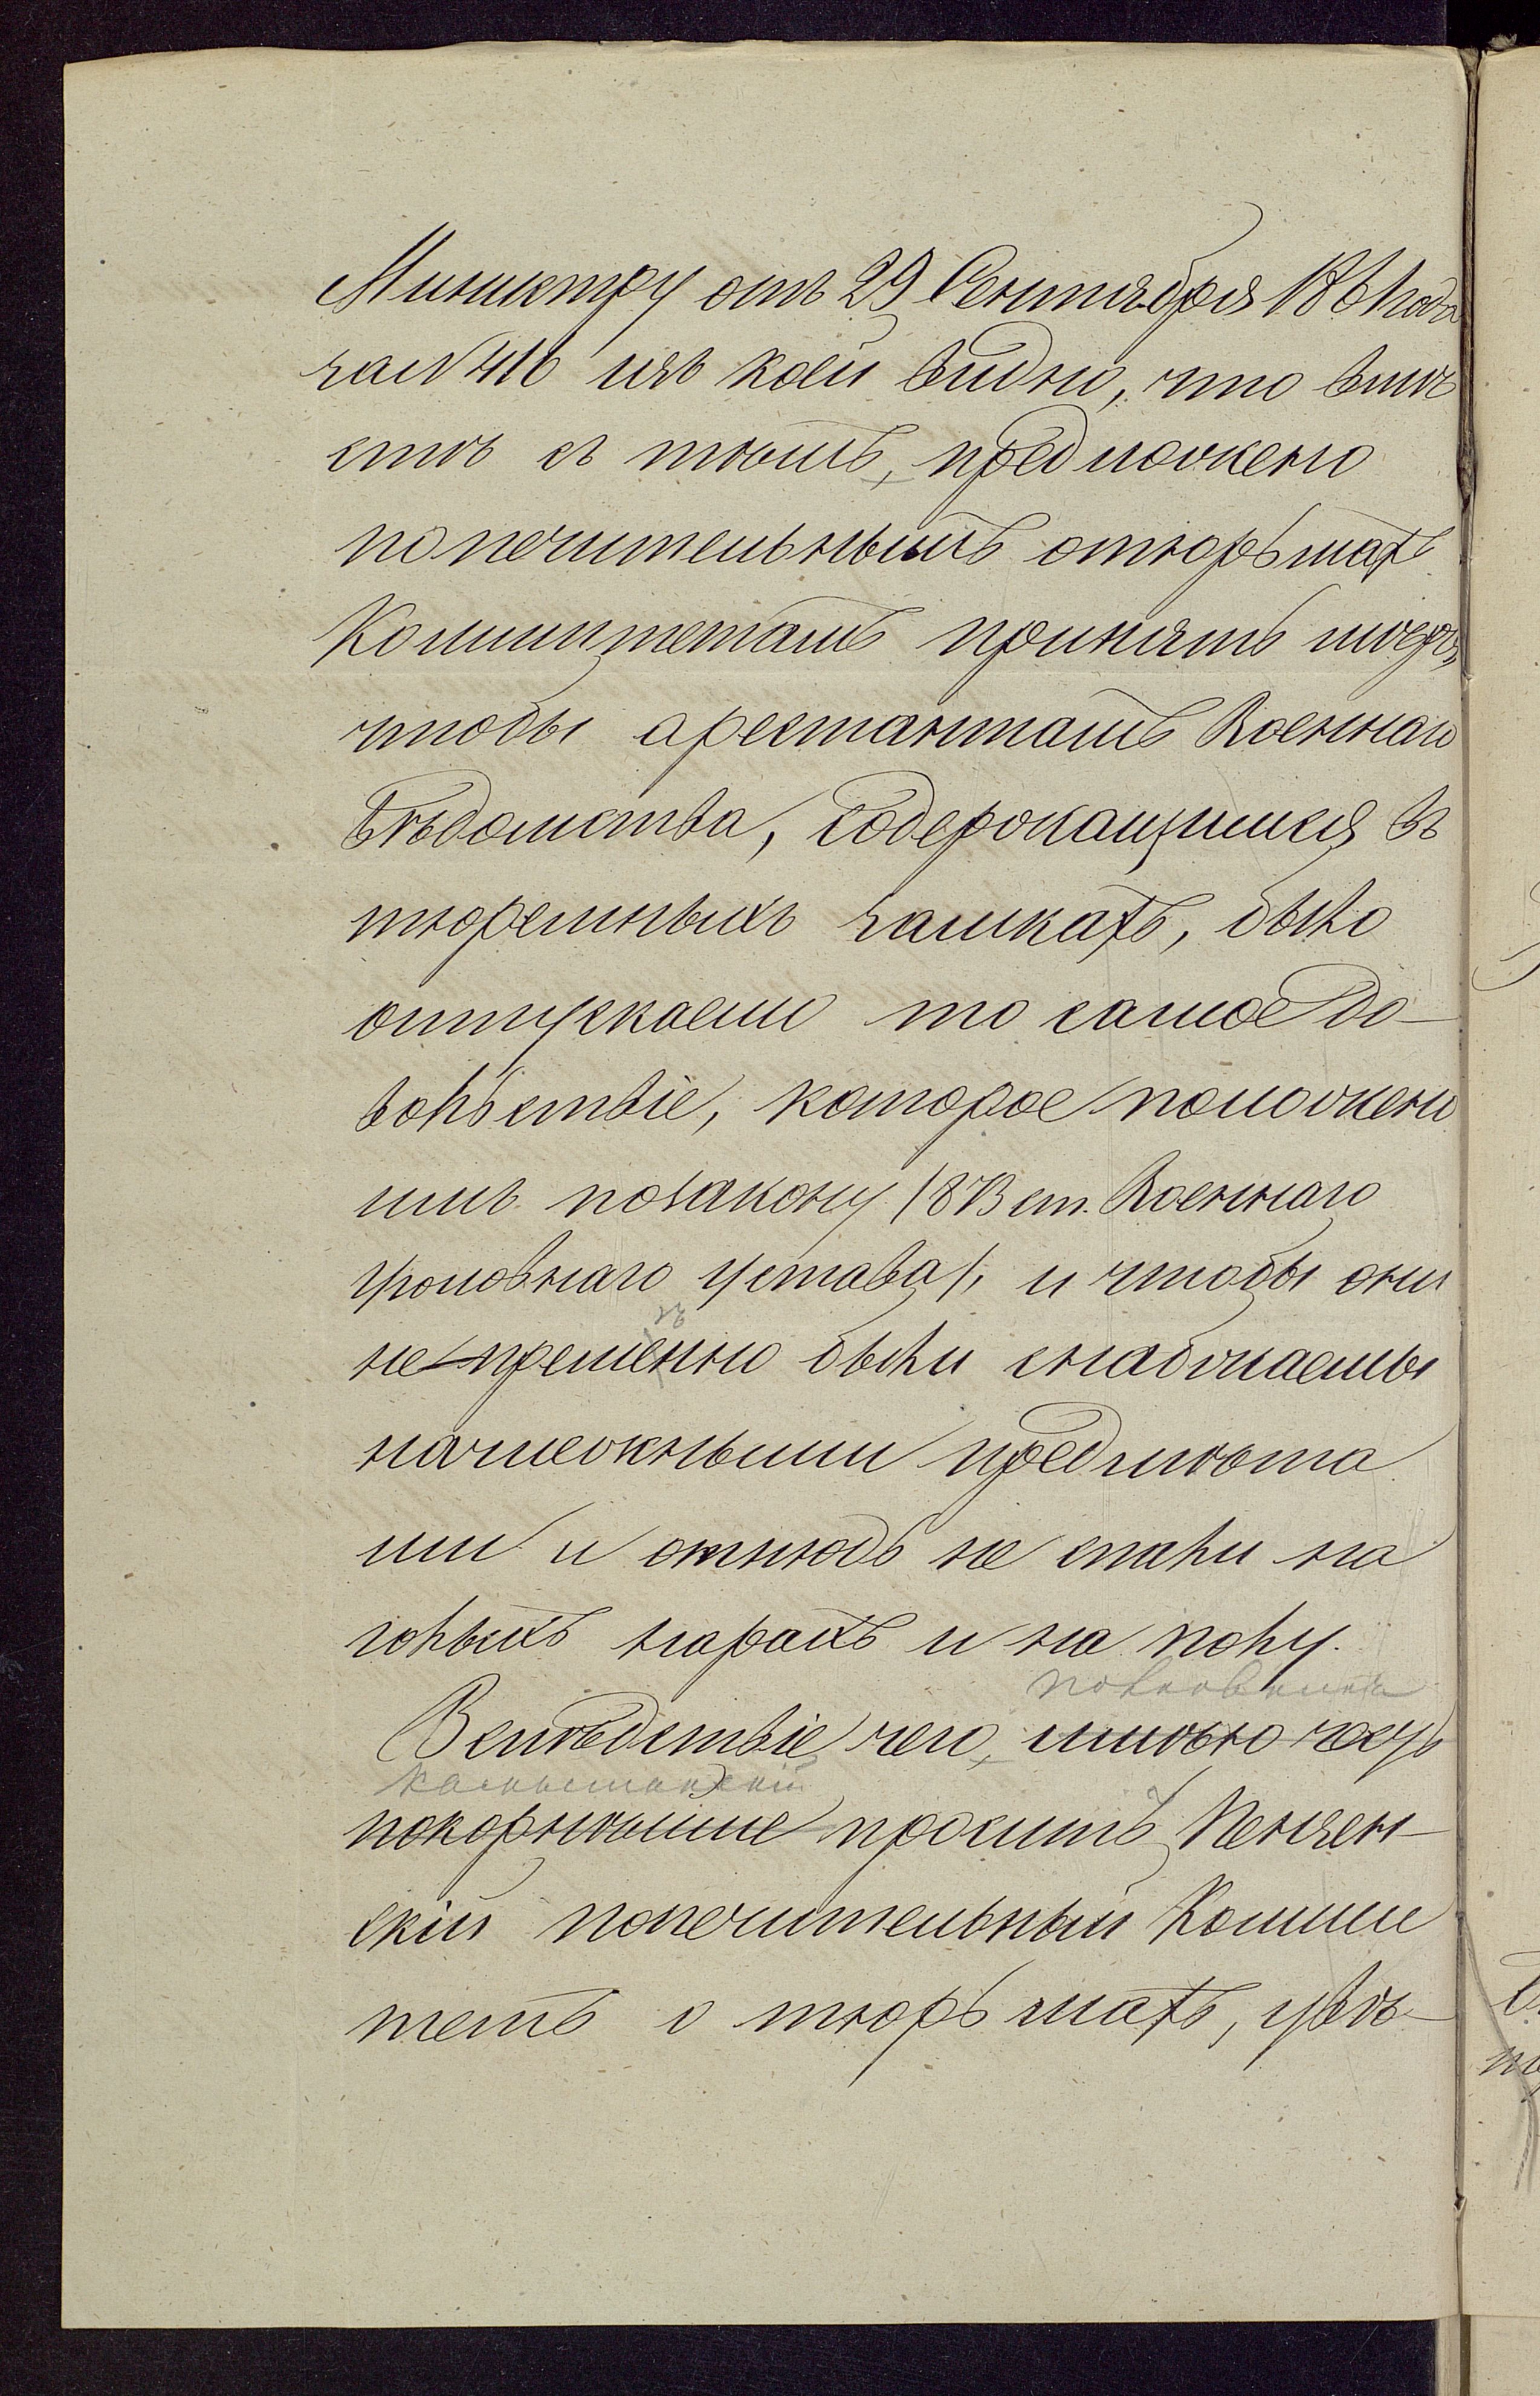 Министру отъ 29 Сентября 1861 года
за N 416 изъ коей видно, что вмѣ
стѣ съ тѣмъ, предложено
попечительнымъ отюрьмахъ
Коммитетамъ принять мѣры,
чтобы арестантамъ Военнаго
Вѣдомства, содержащимся въ
тюремныхъ замкахъ, было
отпускаемо то самое до-
вольствіе, которое положено
имъ позакону /873 ст. Военнаго
уголовнаго устава/, и чтобы они
непременно были снабжаемы
ѣ
належными предмѣта
ми и отнюдь не спали на
голыхъ нарахъ и на полу.
Вслѣдствіе чего, имѣю честь
покорнѣйше проситъ Пензен-
скій попечительный Комми
тетъ о тюрьмахъ, увѣ-